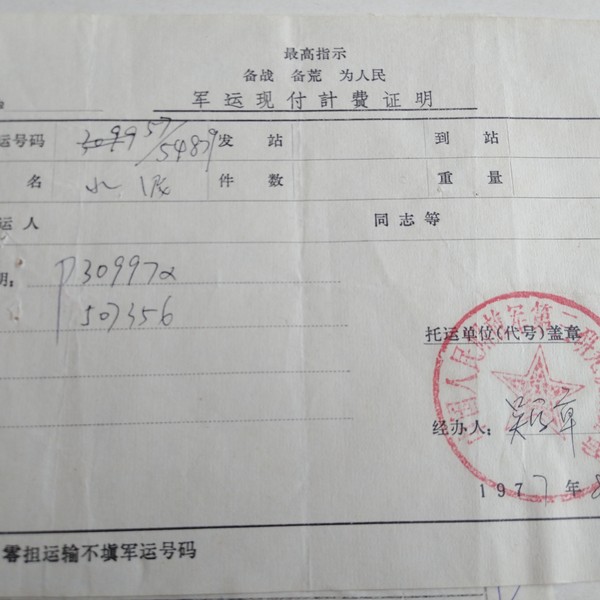 最高指示
备战 备荒 为人民
军运现付計費证明
运号码 57/54879 发站 到站
名 水泥 件数 重量
运人 同志等
明: P309972
507356
托运单位(代号)盖章
经办人:
1977年
零担运输不填军运号码